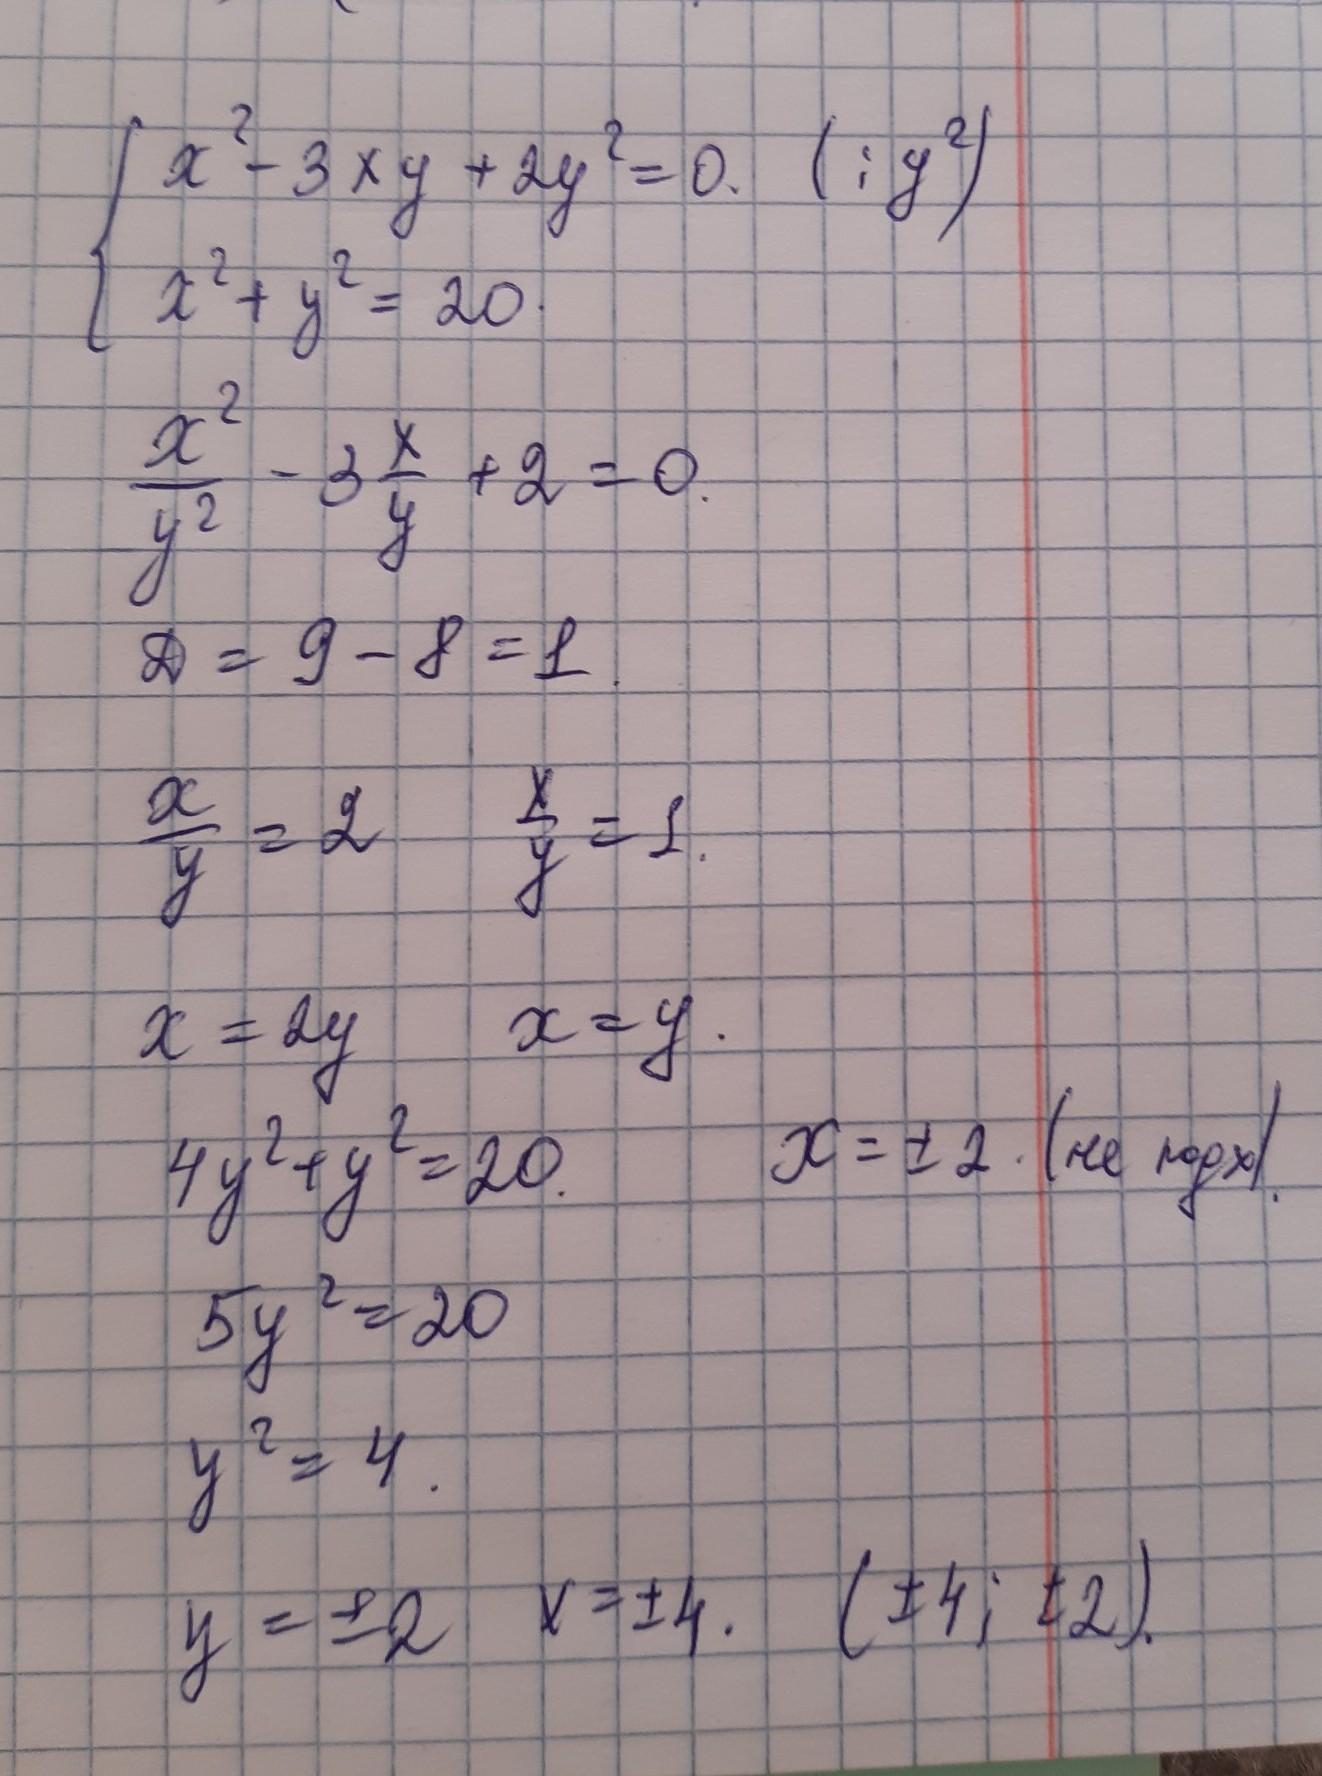 x² - 3xy + 2y² = 0. (: y²)
x² + y² = 20.
x²/y² - 3 x/y + 2 = 0.
D = 9 - 8 = 1.
x/y = 2 x/y = 1.
x = 2y x = y.
4y² + y² = 20. x = ±2. (не подх).
5y² = 20
y² = 4.
y = ±2 x = ±4. (±4; ±2).